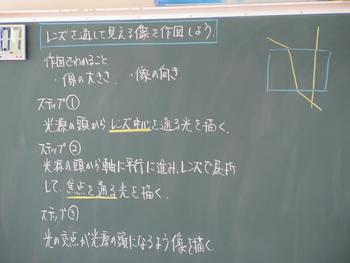 07
レンズを通して見える像を作図しよう。
作図でわかること
・像の大きさ ・像の向き
ステップ①
光源の頭からレンズ中心を通る光を描く。
ステップ②
光源の頭から軸に平行に進み、レンズで屈折
して、焦点を通る光を描く。
ステップ③
光の交点が光源の頭になるよう像を描く。